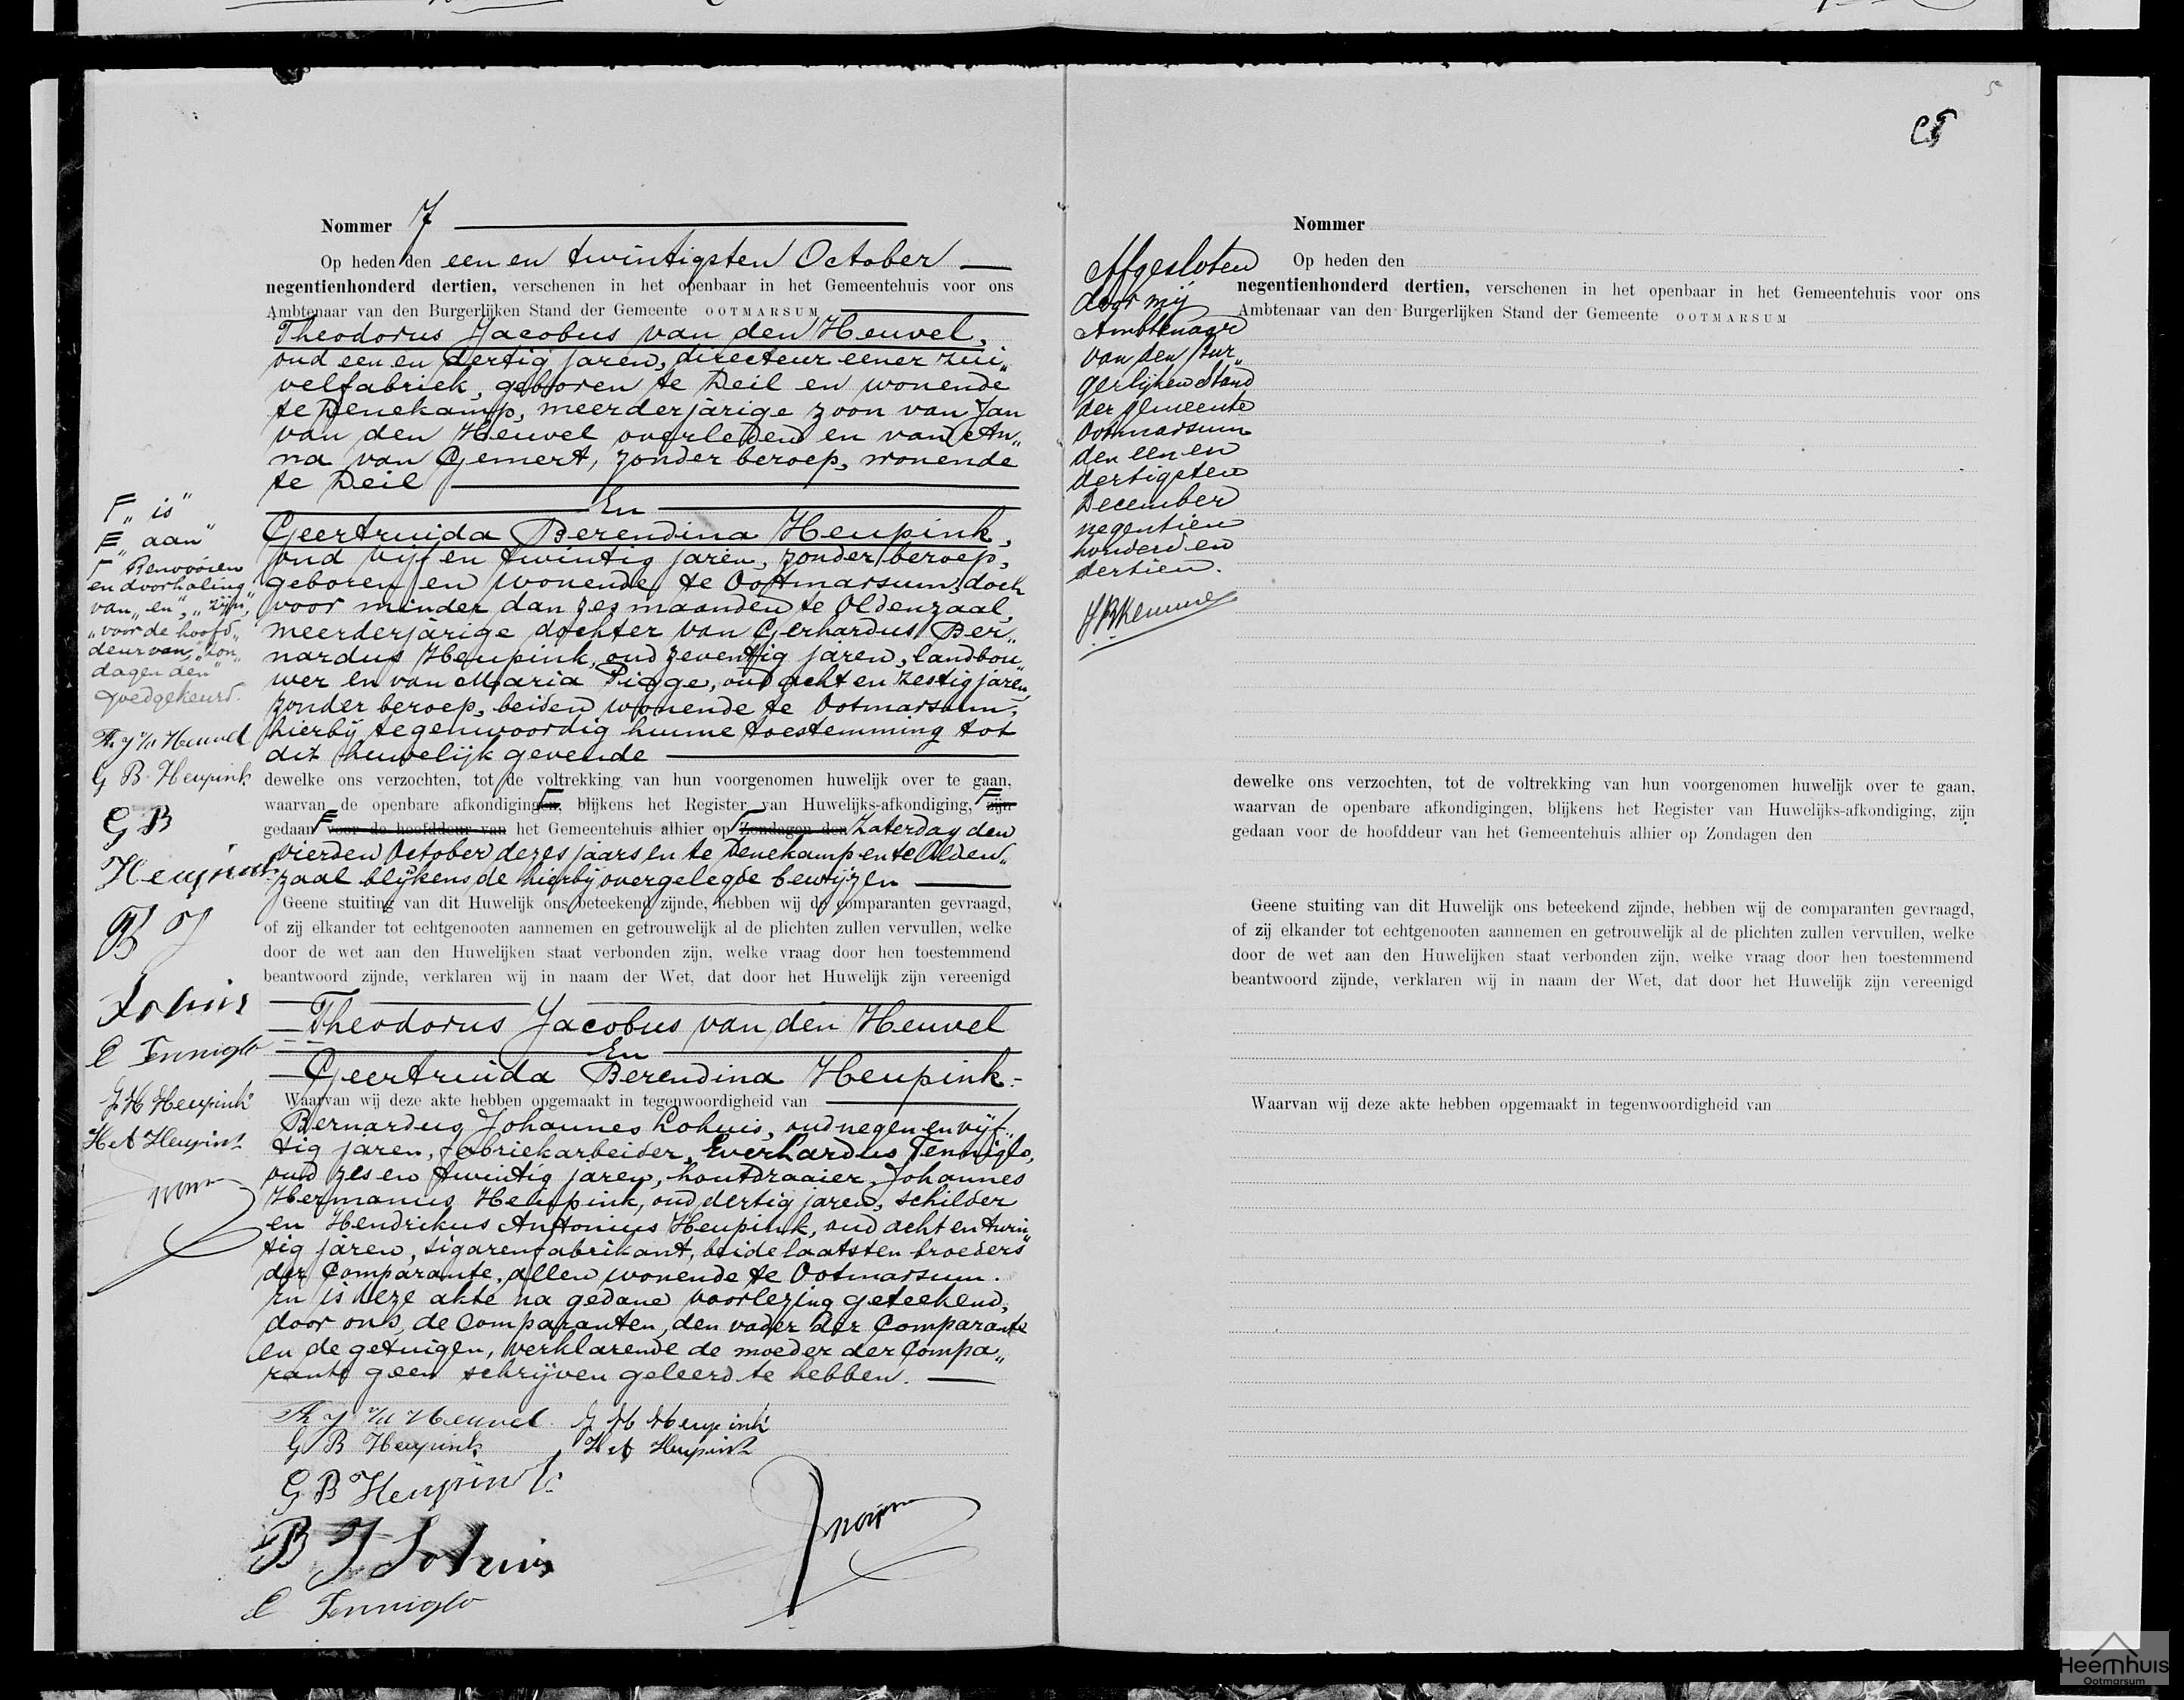 Nommer 7
Op heden den een en twintigsten October
negentienhonderd dertien, verschenen in het openbaar in het Gemeentehuis voor ons
Ambtenaar van den Burgerlijken Stand der Gemeente OOTMARSUM
Theodorus Jacobus van den Heuvel,
oud een en dertig jaren, directeur eener zui„
velfabriek, geboren te Deil en wonende
te Denekamp, meerderjarige zoon van Jan
van den Heuvel overleden en van An„
na van Gemert, zonder beroep, wonende
te Deil
En
Geertruida Berendina Heupink,
oud vijf en twintig jaren, zonder beroep,
geboren en wonende te Ootmarsum, doch
voor minder dan zes maanden te Oldenzaal,
meerderjarige dochter van Gerhardus Ber„
nardus Heupink, oud zeventig jaren, landbou„
wer en van Maria Pigge, oud acht en zestig jaren,
zonder beroep, beiden wonende te Ootmarsum,
hierbij tegenwoordig hunne toestemming tot
dit huwelijk gevende
dewelke ons verzochten, tot de voltrekking van hun voorgenomen huwelijk over te gaan,
waarvan de openbare afkondigingen, blijkens het Register van Huwelijks-afkondiging, zijn
gedaan voor de hoofddeur van het Gemeentehuis alhier op Zondagen den Zaterdag den
vierden October dezes jaars en te Denekamp en te Olden„
zaal blijkens de hierbij overgelegde bewijzen
Geene stuiting van dit Huwelijk ons beteekend zijnde, hebben wij de comparanten gevraagd,
of zij elkander tot echtgenooten aannemen en getrouwelijk al de plichten zullen vervullen, welke
door de wet aan den Huwelijken staat verbonden zijn, welke vraag door hen toestemmend
beantwoord zijnde, verklaren wij in naam der Wet, dat door het Huwelijk zijn vereenigd
Theodorus Jacobus van den Heuvel
En
Geertruida Berendina Heupink
Waarvan wij deze akte hebben opgemaakt in tegenwoordigheid van
Bernardus Johannes Lohuis, oud negen en vijf„
tig jaren, fabriekarbeider, Everhardus Tenniglo,
oud zes en twintig jaren, houtdraaier, Johannes
Hermanus Heupink, oud dertig jaren, schilder
en Hendrikus Antonius Heupink, oud acht en twin„
tig jaren, sigarenfabrikant, beide laatsten broeders
der Comparante, allen wonende te Ootmarsum.
En is deze akte na gedane voorlezing geteekend,
door ons, de Comparanten, den vader der Comparante
en de getuigen, verklarende de moeder der Compa„
rante geen schrijven geleerd te hebben.
Th J v/d Heuvel
G B Heupink
G B Heupink
B J Lohuis
E Tenniglo
J H Heupink
H A Heupink
„is"
„aan"
en doorhaling
van „en", „zijn",
„voor de hoofd„
deur van", „Zon„
dagen den"
goedgekeurd.
Th J v/d Heuvel
G B Heupink
G B
Heupink
B J
Lohuis
E Tenniglo
J H Heupink
H A Heupink
5
Nommer
Op heden den
negentienhonderd dertien, verschenen in het openbaar in het Gemeentehuis voor ons
Ambtenaar van den Burgerlijken Stand der Gemeente OOTMARSUM
Afgesloten
door mij
Ambtenaar
van den Bur„
gerlijken Stand
der gemeente
Ootmarsum
den een en
dertigsten
December
negentien
honderd en
dertien.
dewelke ons verzochten, tot de voltrekking van hun voorgenomen huwelijk over te gaan,
waarvan de openbare afkondigingen, blijkens het Register van Huwelijks-afkondiging, zijn
gedaan voor de hoofddeur van het Gemeentehuis alhier op Zondagen den
Geene stuiting van dit Huwelijk ons beteekend zijnde, hebben wij de comparanten gevraagd,
of zij elkander tot echtgenooten aannemen en getrouwelijk al de plichten zullen vervullen, welke
door de wet aan den Huwelijken staat verbonden zijn, welke vraag door hen toestemmend
beantwoord zijnde, verklaren wij in naam der Wet, dat door het Huwelijk zijn vereenigd
Waarvan wij deze akte hebben opgemaakt in tegenwoordigheid van
Heemhuis
Ootmarsum